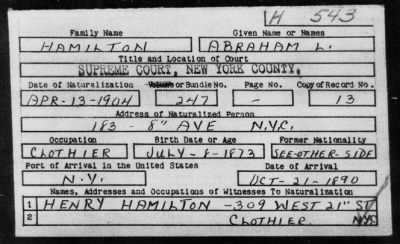 H 543
Family Name Given Name or Names
HAMILTON ABRAHAM L.
Title and Location of Court
SUPREME COURT, NEW YORK COUNTY.
Date of Naturalization Volume or Bundle No. Page No. Copy of Record No.
APR-13-1904 247 - 13
Address of Naturalized Person
183 - 8" AVE N.Y.C.
Occupation Birth Date or Age Former Nationality
CLOTHIER JULY - 1873 SEE-OTHER-SIDE
Port of Arrival in the United States Date of Arrival
N.Y. OCT-21-1890
Names, Addresses and Occupations of Witnesses To Naturalization
1 HENRY HAMILTON - 309 WEST 21" ST
2 CLOTHIER NYC